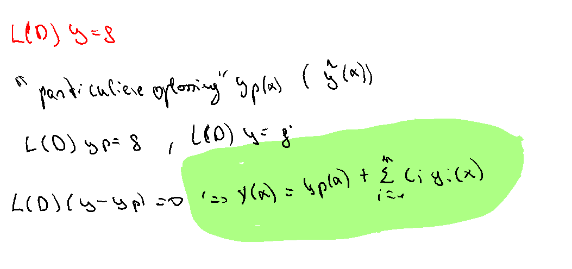 L(D) y = g
"particuliere oplossing" yp(x) ( ỹ(x))
L(D) yp = g , L(D) y = g
L(D)(y - yp) = 0 => y(x) = yp(x) + Σ_{i=1}^{n} Ci yi(x)